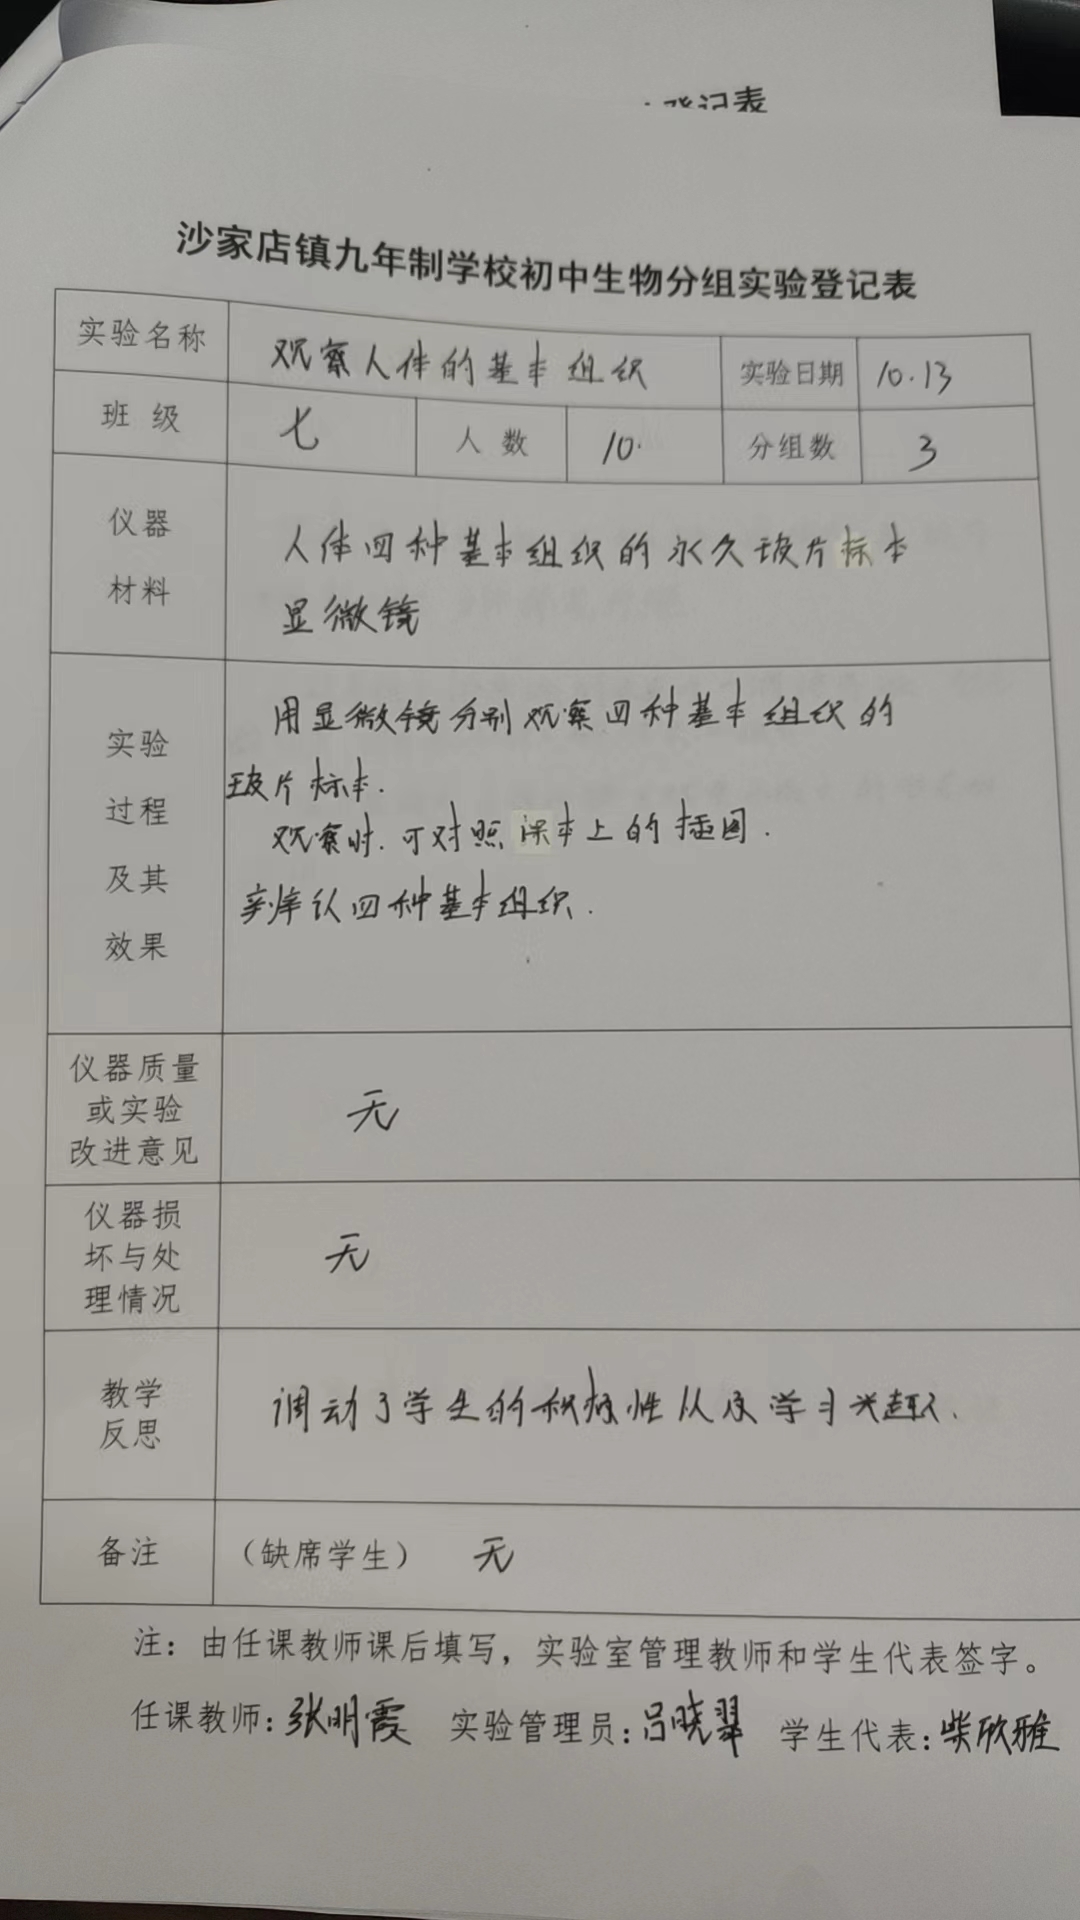 记表
沙家店镇九年制学校初中生物分组实验登记表
实验名称 观察人体的基本组织 实验日期 10.13
班级 七 人数 10. 分组数 3
仪器
材料
人体四种基本组织的永久玻片标本
显微镜
实验
过程
及其
效果
用显微镜分别观察四种基本组织的
玻片标本.
观察时.可对照课本上的插图.
辨认四种基本组织.
仪器质量
或实验
改进意见
无
仪器损
坏与处
理情况
无
教学
反思
调动了学生的积极性以及学习兴趣.
备注 （缺席学生） 无
注：由任课教师课后填写，实验室管理教师和学生代表签字。
任课教师:张明霞 实验管理员:吕晓翠 学生代表:柴欣雅